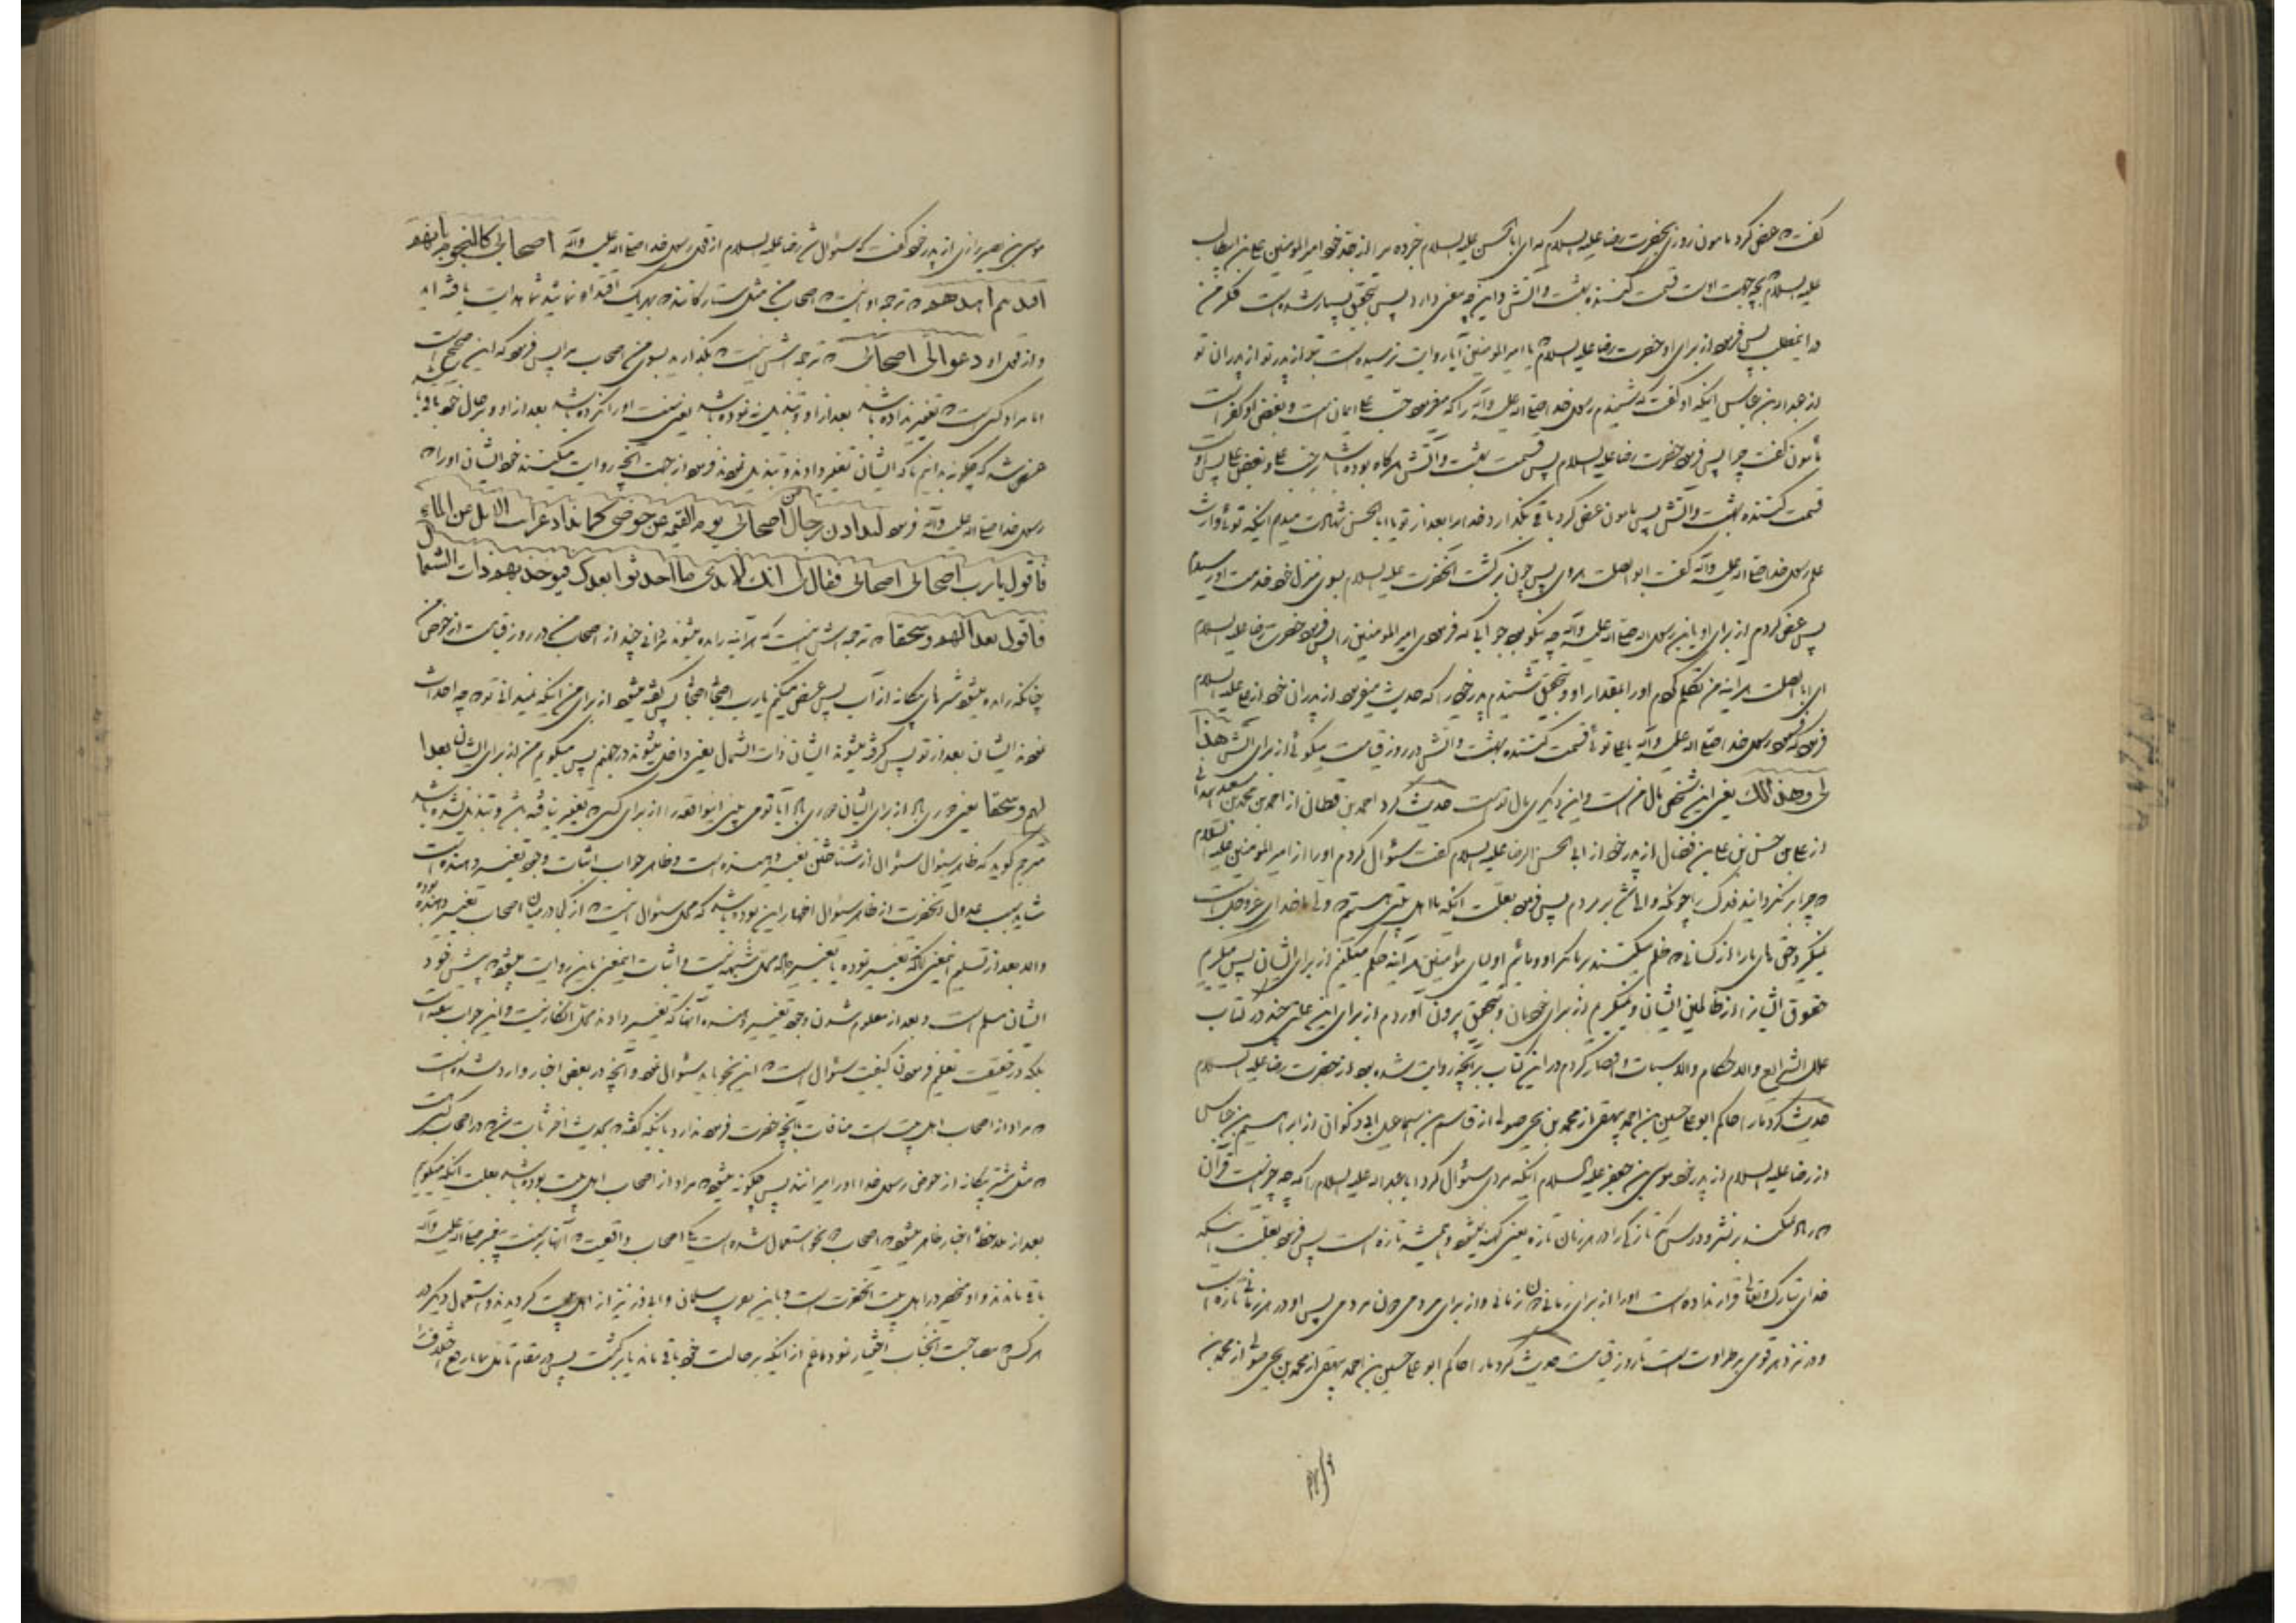 گفت که عرض کرد مامون روزی بحضرت رضا علیه السلام که ای ابا الحسن علیه السلام خبر ده مرا از جد خود امیر المؤمنین علی بن ابیطالب
علیه السلام که بچه جهت اوست قسمت کننده بهشت و آتش و این چه معنی دارد پس بتحقیق بسیار شده است فکر من
در اینمطلب پس فرمود از برای او حضرت رضا علیه السلام یا امیر المومنین آیا روایت نرسیده است بتو از پدر تو از پدران تو
از عبداله بن عباس اینکه او گفت که شنیدم رسول خدا صلی اله علیه وآله را که میفرمود حب علی ایمان است و بغض او کفر است
مأمون گفت چرا پس فرمود حضرت رضا علیه السلام پس قسمت بهشت و آتش هرگاه بوده باشد بر حب علی و بغض علی پس اوست
قسمت کننده بهشت و آتش پس مامون عرض کرد باقی نگذارد خدا مرا بعد از تو یا ابا الحسن شهادت میدهم اینکه توئی وارث
علم رسول خدا صلی اله علیه وآله گفت ابو الصلت هروی پس چون برگشت آنحضرت علیه السلام بسوی منزل خود خدمت او رسیدم
پس عرض کردم از برای او یابن رسول اله صلی اله علیه وآله چه نیکو بود جوابی که فرمودی امیر المومنین را پس فرمود حضرت رضا علیه السلام
ای ابا الصلت هر آینه من تکلم کردم او را بمقدار او و بتحقیق شنیدم پدر خود را که حدیث میفرمود از پدران خود از علی علیه السلام
فرمود که فرمود رسول خدا صلی اله علیه وآله یا علی توئی قسمت کننده بهشت و آتش در روز قیامت میگوئی از برای آتش هذا
لی وهذا لك یعنی این شخص مال من است و این دیگری مال تو است حدیث کرد احمد بن قطان از احمد بن محمد بن سعید همدانی
از علی بن حسن بن علی بن فضال از پدر خود از ابی الحسن الرضا علیه السلام گفت سؤال کردم او را از امیر المومنین علیه السلام
که چرا بر نگردانید فدک را چونکه والی شد بر مردم پس فرمود بعلت اینکه ما اهل بیتی هستیم که ولی ما خدای عزوجل است
نمیگیرد حق های ما را از کسانی که ظلم میکنند بر ما مگر او و مائیم اولیای مؤمنین هر آینه حکم میکنیم از برای ایشان پس میگیریم
حقوق ایشان را از ظالمین ایشان و نمیگیریم از برای خودمان و بتحقیق بیرون آوردم از برای این علتی چند در کتاب
علل الشرایع والاحکام والاسباب و اقتصار کردم در این کتاب بر آنچه روایت شده بود از حضرت رضا علیه السلام
حدیث کرد ما را حاکم ابو علی حسین بن احمد بیهقی از محمد بن یحیی صولی از قاسم بن اسماعیل ابی ذکوان از ابراهیم بن عباس
از رضا علیه السلام از پدر خود موسی بن جعفر علیه السلام اینکه مردی سؤال کرد ابا عبداله علیه السلام را که چه چیز است قرآن
که زیاد نمیکند بر نشر و درس مگر تازگی را در هر زمان تازه یعنی کهنه نمیشود و همیشه تازه است پس فرمود بعلت اینکه
خدای تبارک و تعالی قرار نداده است او را از برای زمانی دون زمانی و از برای مردمی دون مردمی پس او در هر زمانی تازه است
و در نزد هر قومی با طراوت است تا روز قیامت حدیث کرد ما را حاکم ابو علی حسین بن احمد بیهقی از محمد بن یحیی صولی از محمد بن
موسی بن نصر رازی از پدر خود گفت که سئوال شد رضا علیه السلام از قول رسول خدا صلی اله علیه وآله اصحابی کالنجوم بایهم
اقتدیتم اهتدیتم که ترجمه او اینست که اصحاب من مثل ستارگانند بهر یک اقتدا نمائید شما هدایت یافته اید
و از قول او دعوا لی اصحابی که ترجمه اش اینست که بگذارید بسوی من اصحاب مرا پس فرمود که این صحیح است
اما مراد کسی است که تغییر نداده باشد بعد از او و تبدیل ننموده باشد
عرض شد که چگونه بدانیم ما که ایشان تغییر دادند و تبدیل نمودند فرمود از جهت آنچه روایت میکنند خود ایشان او را که
رسول خدا صلی اله علیه وآله فرمود لیذادن رجال من اصحابی یوم القیمه عن حوضی کما تذاد غرائب الابل عن الماء
فاقول یارب اصحابی اصحابی فقال لی انك لا تدری ما احدثوا بعدك فیوخذ بهم ذات الشمال
فاقول بعدا لهم وسحقا که ترجمه اش اینست که هر آینه رانده میشوند مردانی چند از اصحاب من در روز قیامت از حوض من
چنانکه رانده میشود شترهای بیگانه از آب پس عرض میکنم یارب اصحابی اصحابی پس گفته میشود از برای من اینکه نمیدانی تو که چه احداث
نمودند ایشان بعد از تو پس گرفته میشوند ایشان ذات الشمال یعنی داخل میشوند در جهنم پس میگویم من از برای ایشان بعدا
لهم وسحقا یعنی دوری باد از برای ایشان دوری باد آیا تو می بینی اینرا از برای کسی که تغییر نیافته باشد و تبدیل نشده باشد
مترجم گوید که ظاهر سئوال سئوال از شناختن تغییر دهنده است و ظاهر جواب اثبات وجود تغییر دهنده است
شاید سبب عدول آنحضرت از ظاهر سئوال اظهار این بوده باشد که محل سئوال اینست که از کجا در میان اصحاب تغییر دهنده بوده
والا بعد از تسلیم اینمعنی
ایشان مسلم است و بعد از معلوم شدن وجود تغییر دهنده
بلکه در حقیقت تعلیم فرمودن کیفیت سئوال است که این نحو باید سئوال نمود و آنچه در بعض اخبار وارد شده است
که مراد از اصحاب اهل بیت است منافات با آنچه حضرت فرمود ندارد
که مثل شتر بیگانه از حوض رسول خدا او را میرانند پس چگونه میشود که مراد از اصحاب اهل بیت بوده باشد بعلت اینکه میگویم
بعد از ملاحظه اخبار ظاهر میشود که اصحاب بدو نحو استعمال شده است
باقی ماندند و او منحصر در اهل بیت آنحضرت است
هر کس که مصاحبت آنجناب اختیار نمود